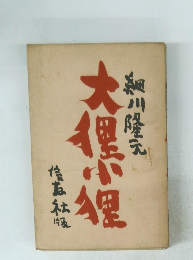 細川隆元
大狸小狸
信友社版